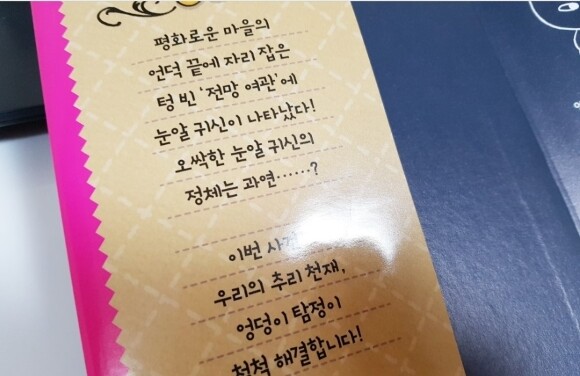 평화로운 마을의
언덕 끝에 자리 잡은
텅 빈 ‘전망 여관’에
눈알 귀신이 나타났다!
오싹한 눈알 귀신의
정체는 과연……?
이번
우리의 추리 천재,
엉덩이 탐정이
척척 해결합니다!